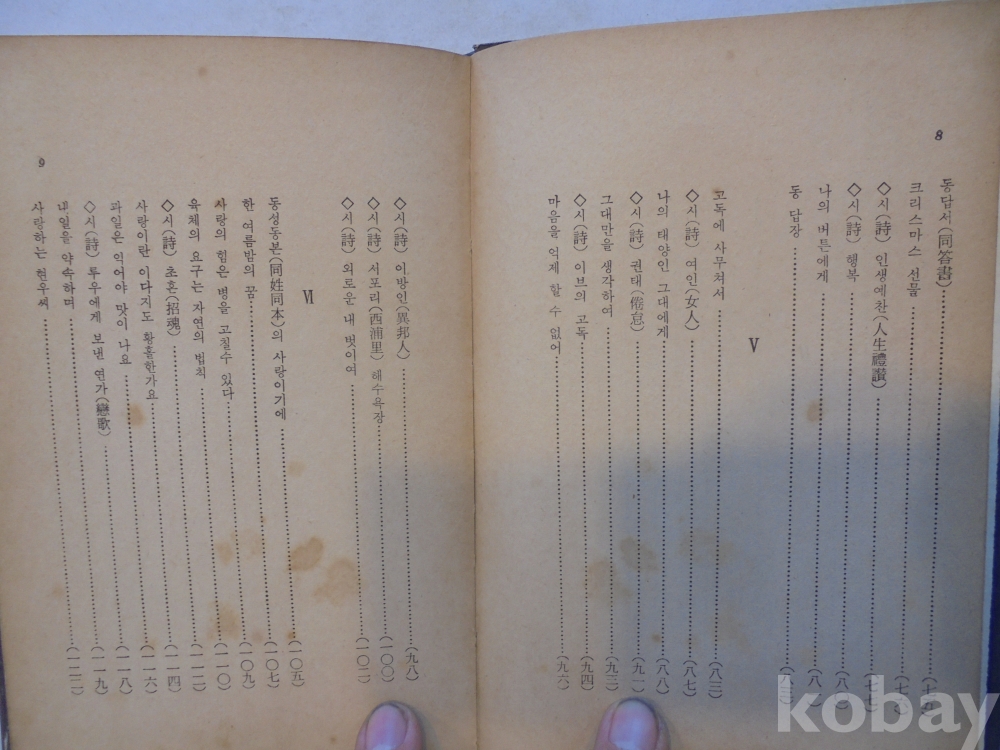 8
동답서(同答書)
크리스마스 선물
◇시(詩) 인생예찬(人生禮讃)
◇시(詩) 행복
나의 버튼에게
동 답장
V
고독에 사무쳐서 (八三)
◇시(詩) 여인(女人) (八七)
나의 태양인 그대에게 (八八)
◇시(詩) 권태(倦怠) (九一)
그대만을 생각하여 (九三)
◇시(詩) 이브의 고독 (九四)
마음을 억제 할 수 없어 (九六)
9
◇시(詩) 이방인(異邦人) (九八)
◇시(詩) 서포리(西浦里) 해수욕장 (一〇〇)
◇시(詩) 외로운 내 벗이여 (一〇二)
VI
동성동본(同姓同本)의 사랑이기에 (一〇五)
한 여름밤의 꿈 (一〇七)
사랑의 힘은 병을 고칠수 있다 (一〇九)
육체의 요구는 자연의 법칙 (一一〇)
◇시(詩) 초혼(招魂) (一一二)
사랑이란 이다지도 황홀한가요 (一一四)
과일은 익어야 맛이 나요 (一一六)
◇시(詩) 투우에게 보낸 연가(戀歌) (一一八)
내일을 약속하며 (一一九)
사랑하는 현우씨 (一二二)
kobay